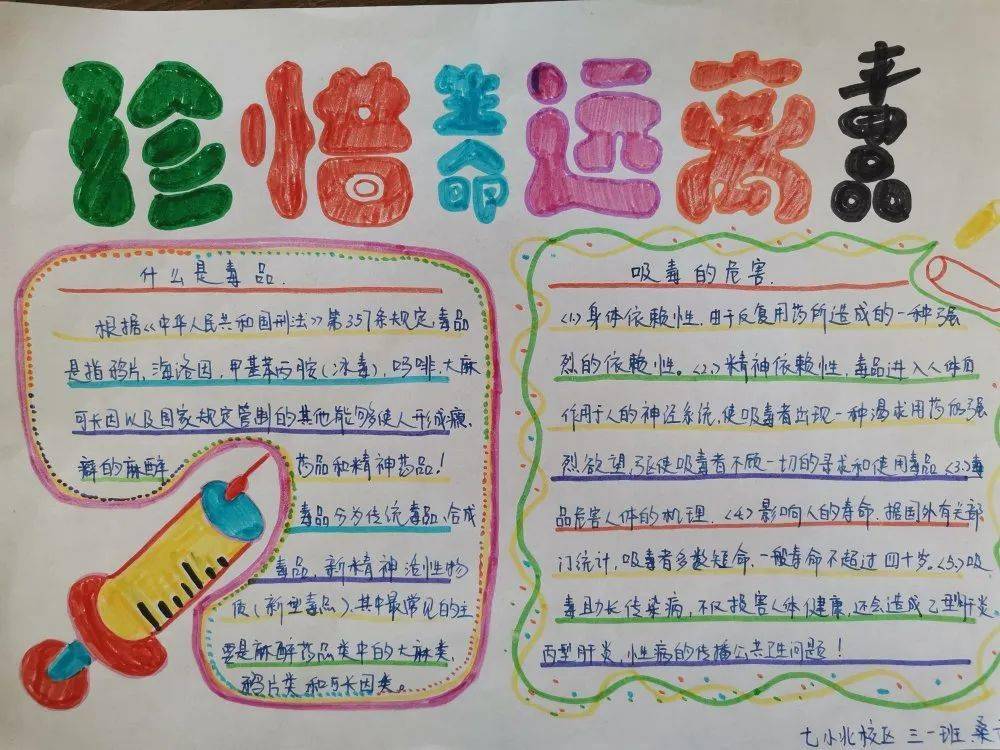 珍惜生命远离毒品
什么是毒品.
根据《中华人民共和国刑法》第357条规定,毒品
是指鸦片,海洛因,甲基苯丙胺(冰毒),吗啡,大麻
可卡因以及国家规定管制的其他能够使人形成瘾
癖的麻醉药品和精神药品!
毒品分为传统毒品、合成
毒品,新精神活性物
质(新型毒品),其中最常见的主
要是麻醉药品类中的大麻类,
鸦片类和可卡因类。
吸毒的危害.
<1.>身体依赖性,由于反复用药所造成的一种强
烈的依赖性。<2.>精神依赖性,毒品进入人体后
作用于人的神经系统,使吸毒者出现一种渴求用药的强
烈欲望,强使吸毒者不顾一切的寻求和使用毒品<3.>毒
品危害人体的机理.<4.>影响人的寿命,据国外有关部
门统计,吸毒者多数短命,一般寿命不超过四十岁。<5.>吸
毒助长传染病,不仅损害人体健康,还会造成乙型肝炎
丙型肝炎,性病的传播公共卫生问题!
七小北校区 三一班 桑